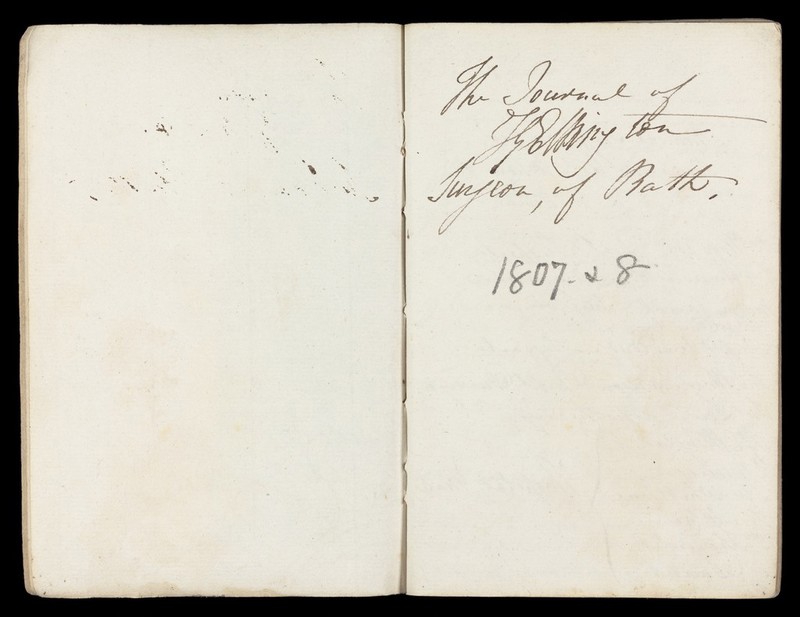 The Journal of
Ellington
Surgeon, of Bath.
1807 & 8